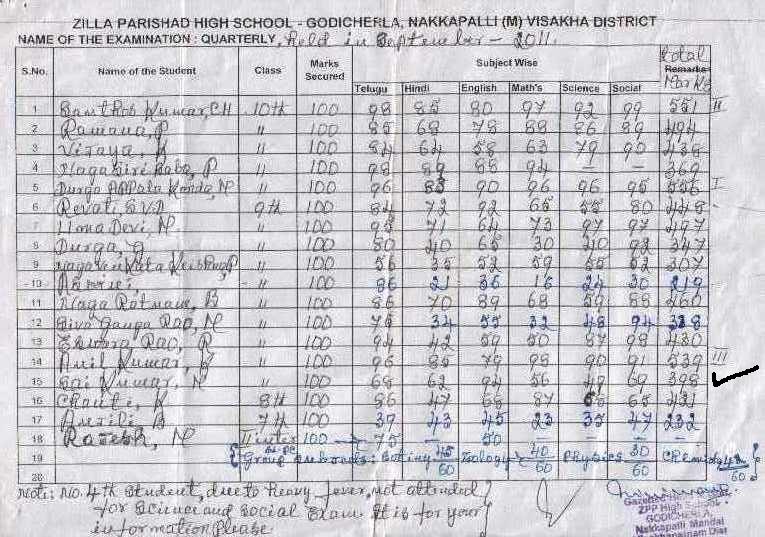 ZILLA PARISHAD HIGH SCHOOL - GODICHERLA, NAKKAPALLI (M) VISAKHA DISTRICT
NAME OF THE EXAMINATION : QUARTERLY, held in September - 2011.
S.No. Name of the Student Class Marks Secured Subject Wise Total Remarks Marks
Telugu Hindi English Math's Science Social
1 Santhosh Kumar, CH 10th 100 98 85 80 97 92 99 551 II
2 Ramana, P 〃 100 85 68 78 88 86 89 494
3 Vijaya, K 〃 100 84 64 58 63 79 90 438
4 Nagagiri Babu, P 〃 100 98 89 88 94 - - 369
5 Durga Appala Konda, N 〃 100 96 83 90 96 96 95 556 I
6 Revati S.V.D 9th 100 84 72 92 65 55 80 448
7 Uma Devi, N. 〃 100 95 71 64 73 97 97 497
8 Durga, G 〃 100 80 40 65 30 40 92 347
9 〃 100 56 35 52 59 55 52 307
10 〃 100 86 21 36 16 24 30 219
11 Naga Ratnam, B 〃 100 86 70 89 68 59 88 460
12 Siva Ganga Rao, N 〃 100 75 34 55 32 48 94 338
13 Eswara Rao, R 〃 100 94 42 59 50 87 98 430
14 Anil Kumar, G 〃 100 96 85 79 98 90 91 539 III
15 Sai Kumar, N 〃 100 68 62 94 56 49 69 398
16 K 8th 100 86 47 66 87 65 431
17 B 7th 100 39 43 45 23 35 47 232
18 Rajesh, N II inter 100 → 75 - 50 - - -
19 { Group subjects: Botiny 45/60 Zoology 40/60 Physics 30/60 Chemistry /60 }
20
Note: No. 4th Student, due to heavy fever, not attended
for Science and Social Exam. It is for your
information Please
ZPP High School
GODICHERLA
Nakkapalli Mandal
Visakhapatnam Dist